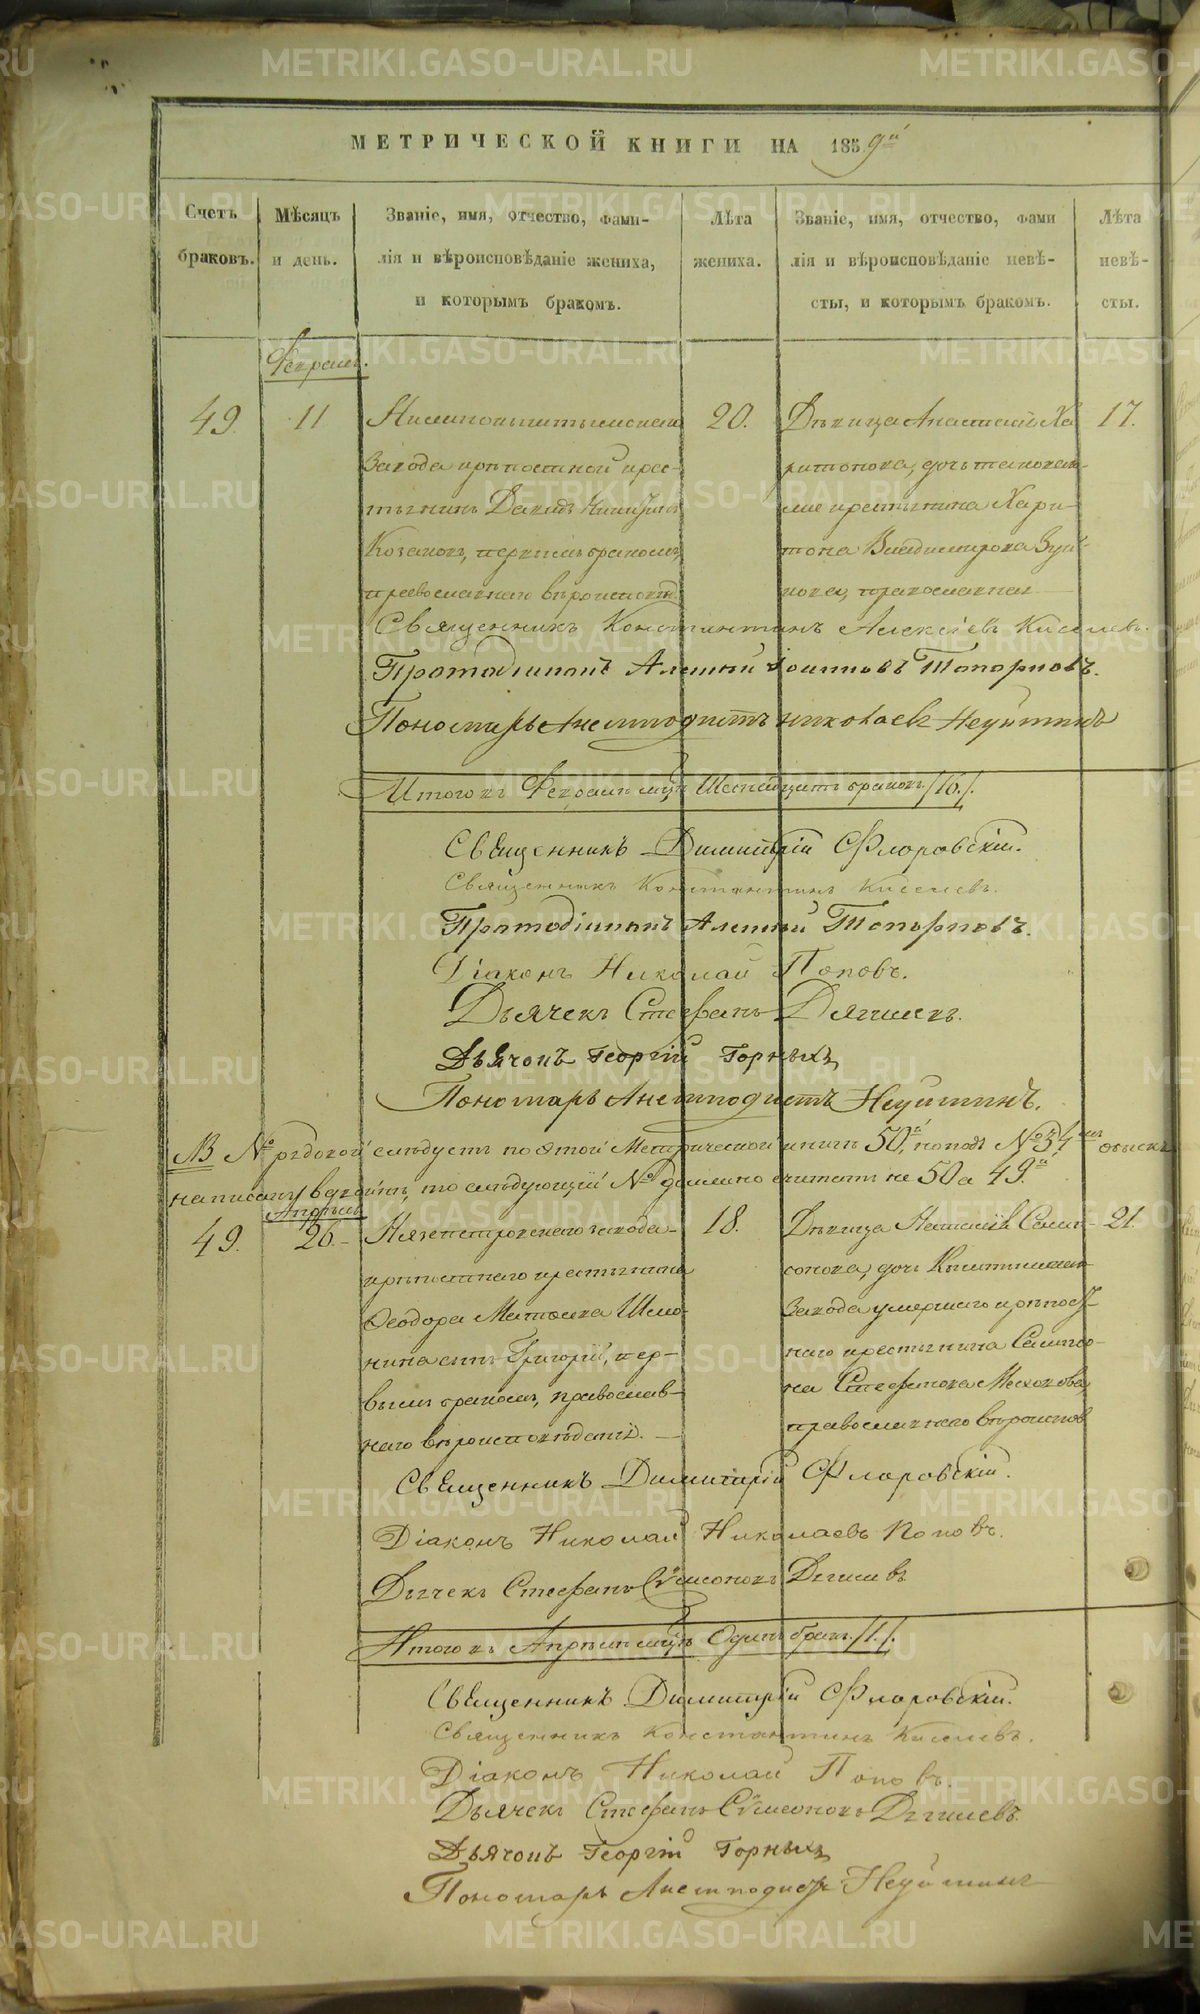 МЕТРИЧЕСКОЙ КНИГИ НА 1859й
Счетъ браковъ.
Мѣсяцъ и день.
Званіе, имя, отчество, фами-
лія и вѣроисповѣданіе жениха,
и которымъ бракомъ.
Лѣта
жениха.
Званіе, имя, отчество, фами
лія и вѣроисповѣданіе невѣ-
сты, и которымъ бракомъ.
Лѣта
невѣ-
сты.
Февраль.
49. 11
завода крѣпостной крес-
тьянинъ Давидъ
Козаковъ, первымъ бракомъ,
православнаго вѣроисповѣд
20.
Дѣвица Анастасія Ха
ритонова, дочь
крестьянина Хари-
тона Владимірова Зуй
кова, православная
17.
Священникъ Константинъ Алексѣевъ Киселевъ.
Протодіаконъ Алексѣй Іоанновъ Топорковъ.
Пономарь Анемподистъ Николаевъ Неуйминъ
Итого въ Февралѣ мцѣ Шестнадцать браковъ /16./.
Священникъ Димитрій Флоровскій.
Священникъ Константинъ Киселевъ.
Протодіаконъ Алексѣй Топорковъ.
Діаконъ Николай Поповъ.
Дьячекъ Стефанъ Дягилевъ.
Дьячокъ Георгій Горныхъ
Пономарь Анемподистъ Неуйминъ.
NB № рядовой слѣдуетъ по этой Метрической книгѣ 50й, но подъ № обыскъ
написанъ то слѣдующій № должно считать не 50 а 49й.
Апрѣль
49. 26.
Нязепетровскаго завода
крѣпостнаго крестьянина
Ѳеодора Матвѣева Шмо-
нина сынъ Григорій, пер-
вымъ бракомъ, православ-
наго вѣроисповѣданія.
18.
Дѣвица Наталія Самп-
сонова, дочь Кыштымскаго
завода умершаго крѣпост-
наго крестьянина Сампсо-
на Стефанова
православнаго вѣроисповѣ
21.
Священникъ Димитрій Флоровскій.
Діаконъ Николай Николаевъ Поповъ.
Дьячекъ Стефанъ Сѵмеоновъ Дягилевъ
Итого въ Апрѣлѣ мцѣ Одинъ бракъ. /1./.
Священникъ Димитрій Флоровскій.
Священникъ Константинъ Киселевъ.
Діаконъ Николай Поповъ.
Дьячекъ Стефанъ Сѵмеоновъ Дягилевъ.
Дьячокъ Георгій Горныхъ
Пономарь Анемподистъ Неуйминъ
METRIKI.GASO-URAL.RU